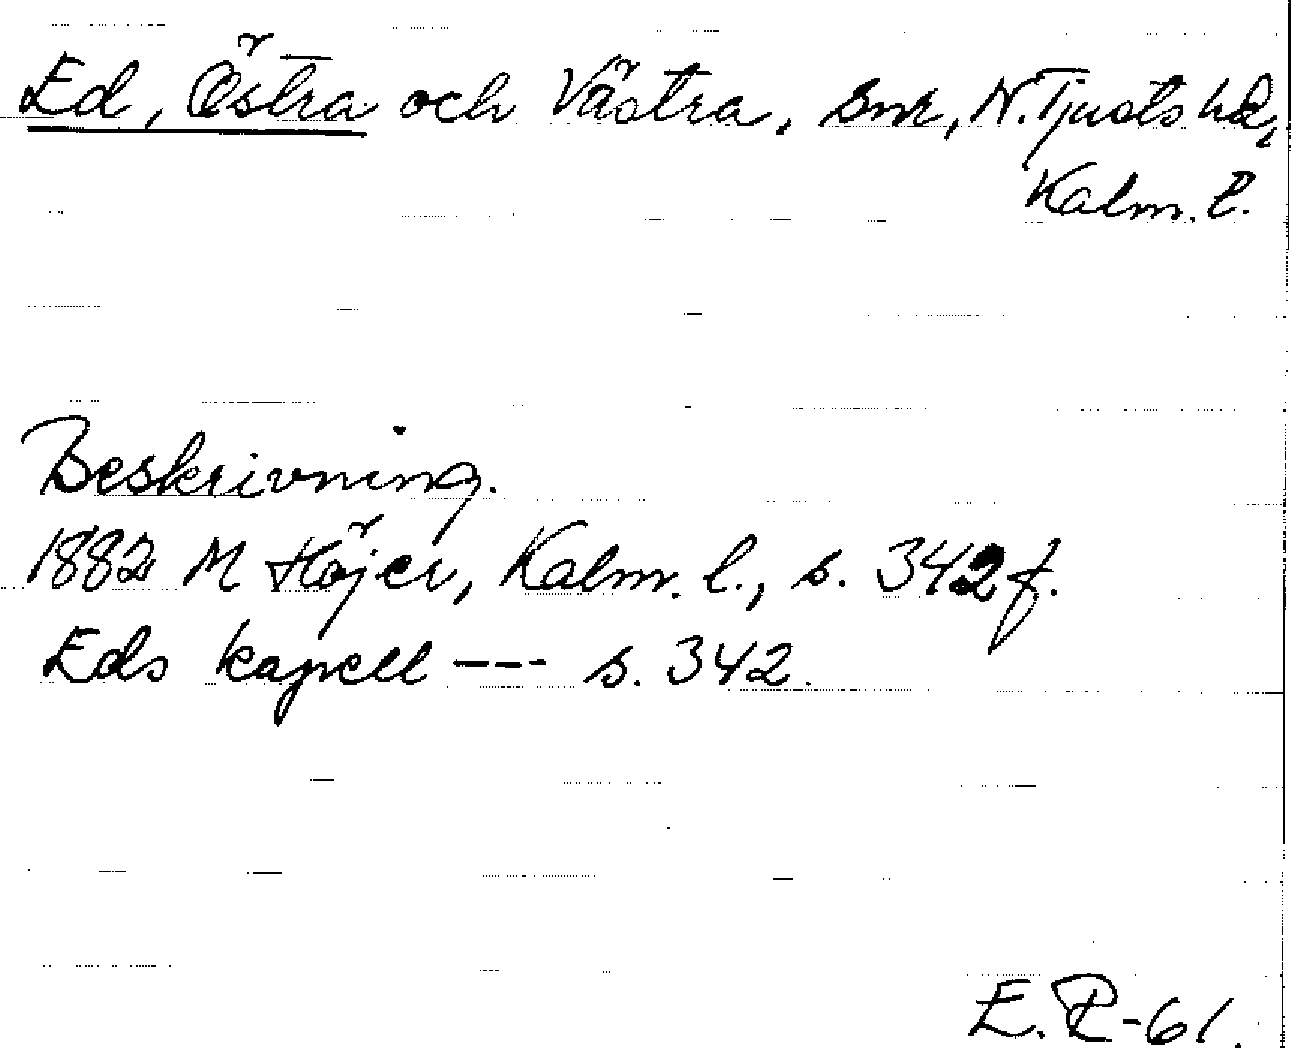 Ed, Östra och Västra, Sml, N. Tjusts hd,
Kalm. l.
Beskrivning.
1882 M Höjer, Kalm. l., s. 342 f.
Eds kapell --- s. 342.
E. P-61.